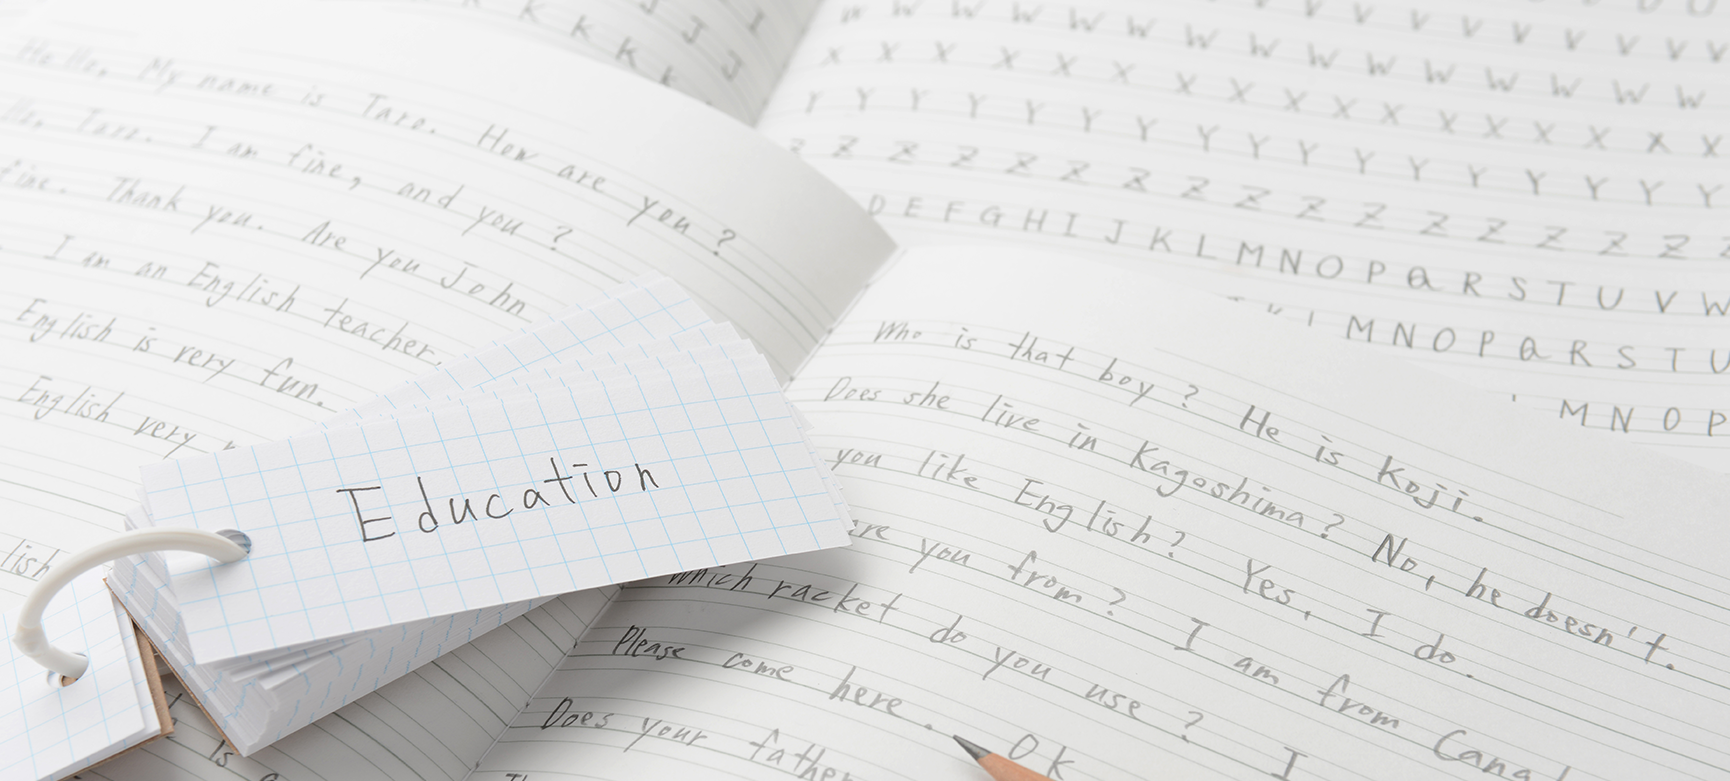 K K K K
J J I
Hello, My name is Taro. How are you?
Taro. I am fine, and you?
fine. Thank you. Are you John
I am an English teacher.
English is very fun.
English very
lish
Education
V V V V V V V
W W W W W W W W W W W W W W
X X X X X X X X X X X X X X X
Y Y Y Y Y Y Y Y Y Y Y Y Y Y Y Y
Z Z Z Z Z Z Z Z Z Z Z Z Z Z Z
D E F G H I J K L M N O P Q R S T U V W
M N O P Q R S T U
M N O P
Who is that boy? He is Koji.
Does she live in Kagoshima? No, he doesn't.
you like English? Yes, I do.
are you from? I am from Canad
Which racket do you use? I
Please come here. OK
Does your father
Is